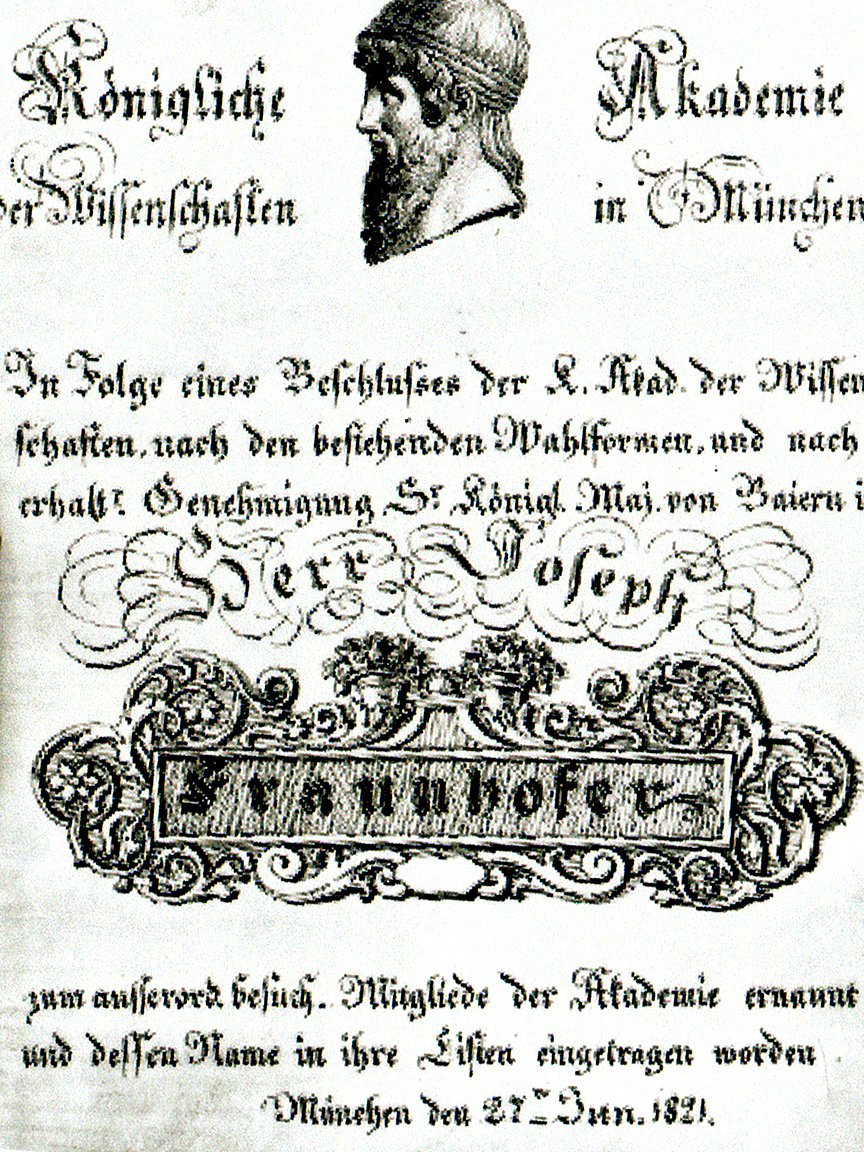 Königliche Akademie
der Wissenschaften in München
In Folge eines Beschlusses der K. Akad. der Wissen
schaften, nach den bestehenden Wahlformen, und nach
erhaltr Genehmigung Sr Königl. Maj. von Baiern i
Herr Joseph
Fraunhofer
zum ausserord. besuch. Mitgliede der Akademie ernannt
und dessen Name in ihre Listen eingetragen worden
München den 27ten Jun. 1821.